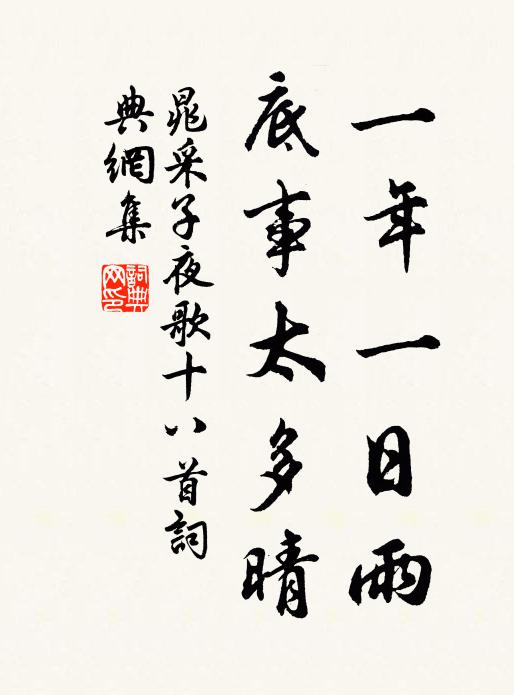 一年一日雨
底事太多晴
晁采子夜歌十八首詞
典網集
詞典
网印